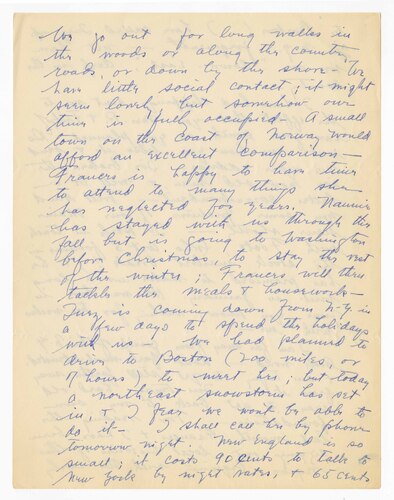 We go out for long walks in
the woods or along the country
roads, or down by the shore - We
have little social contact; it might
seem lonely, but somehow our
time is fully occupied - A small
town on the coast of Norway would
afford an excellent comparison -
Frances is happy to have time
to attend to many things she
has neglected for years. Nannie
has stayed with us through this
fall but is going to Washington
before Christmas, to stay the rest
of the winter; Frances will then
tackle the meals & housework -
is coming down from N.Y. in
a few days to spend the holidays
with us - We had planned to
drive to Boston (200 miles, or
7 hours) to meet her; but today
a northeast snowstorm has set
in, & I fear we wont be able to
do it - I shall call her by phone
tomorrow night. New England is so
small; it costs 90 cents to talk to
New York by night rates, & 65 cents